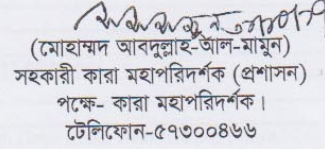 (মোহাম্মদ আবদুল্লাহ-আল-মামুন)
সহকারী কারা মহাপরিদর্শক (প্রশাসন)
পক্ষে- কারা মহাপরিদর্শক।
টেলিফোন-৫৭৩০০৪৬৬